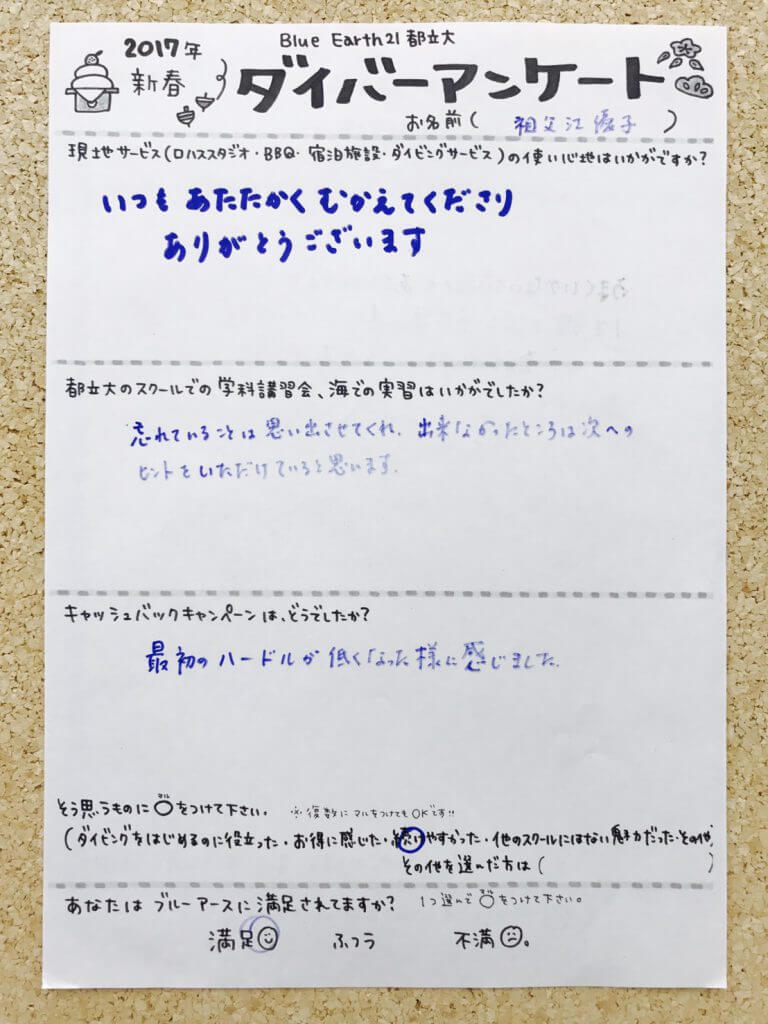 2017年
新春
Blue Earth21 都立大
ダイバーアンケート
お名前( 祖父江 優子 )
現地サービス(ロハススタジオ・BBQ・宿泊施設・ダイビングサービス)の使い心地はいかがですか?
いつも あたたかく むかえてくださり
ありがとうございます
都立大のスクールでの学科講習会、海での実習はいかがでしたか?
忘れていることは思い出させてくれ、出来なかったところは次への
ヒントをいただけていると思います。
キャッシュバックキャンペーンは、どうでしたか?
最初のハードルが低くなった様に感じました。
そう思うものに○をつけて下さい。 ※複数にマルをつけてもOKです!!
マル
(ダイビングをはじめるのに役立った・お得に感じた・続けやすかった・他のスクールにはない魅力だった・その他
その他を選んだ方は( )
あなたは ブルーアースに満足されてますか? 1つ選んで○をつけて下さい。
マル
満足 ふつう 不満。